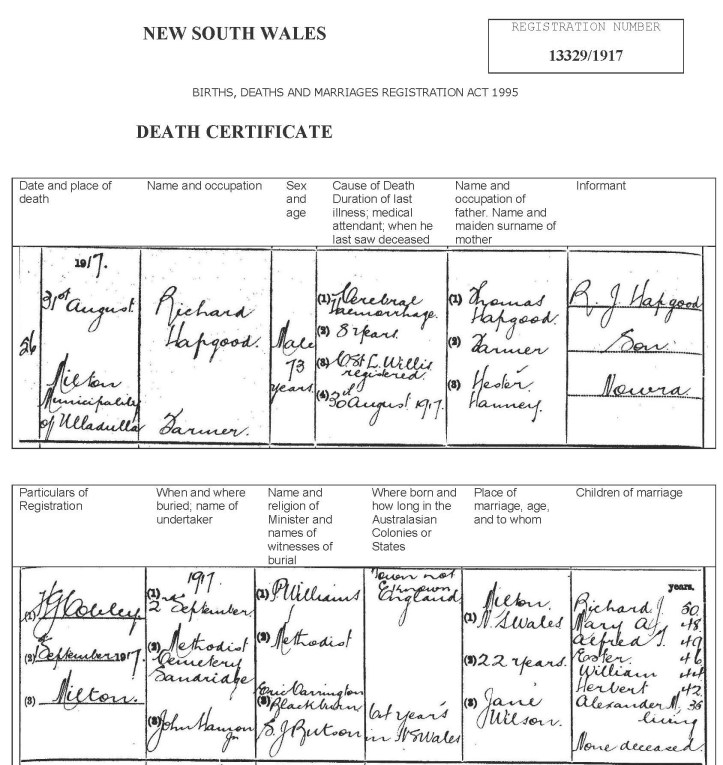 NEW SOUTH WALES
REGISTRATION NUMBER
13329/1917
BIRTHS, DEATHS AND MARRIAGES REGISTRATION ACT 1995
DEATH CERTIFICATE
Date and place of
death
Name and occupation
Sex
and
age
Cause of Death
Duration of last
illness; medical
attendant; when he
last saw deceased
Name and
occupation of
father. Name and
maiden surname of
mother
Informant
26
1917.
31st August
Milton
Municipality
of Ulladulla
Richard
Hapgood.
Farmer.
Male
73
years.
(1) Cerebral
Haemorrhage.
(2) 8 years.
(3) C. St L. Willis
registered.
(4) 30th August 1917.
(1) Thomas
Hapgood.
(2) Farmer
(3) Hester
Hanney.
R. J. Hapgood
Son
Nowra
Particulars of
Registration
When and where
buried; name of
undertaker
Name and
religion of
Minister and
names of
witnesses of
burial
Where born and
how long in the
Australasian
Colonies or
States
Place of
marriage, age,
and to whom
Children of marriage
(1)
(2) September 1917.
(3) Milton.
1917.
(1) 2nd September.
(2) Methodist
Cemetery
Sandridge
(3) John Hannon
Jnr
(1) P Williams
(2) Methodist
Eric Carrington
(3) Blackburn
S. J. Butson
Town not
known
England
61 years
in N S Wales
Milton.
(1) N. S Wales
(2) 22 years.
(3) Jane
Wilson.
years.
Richard J. 50
Mary A. 48
Alfred T. 49
Ester. 46
William 44
Herbert 42
Alexander N. 36
living
None deceased.